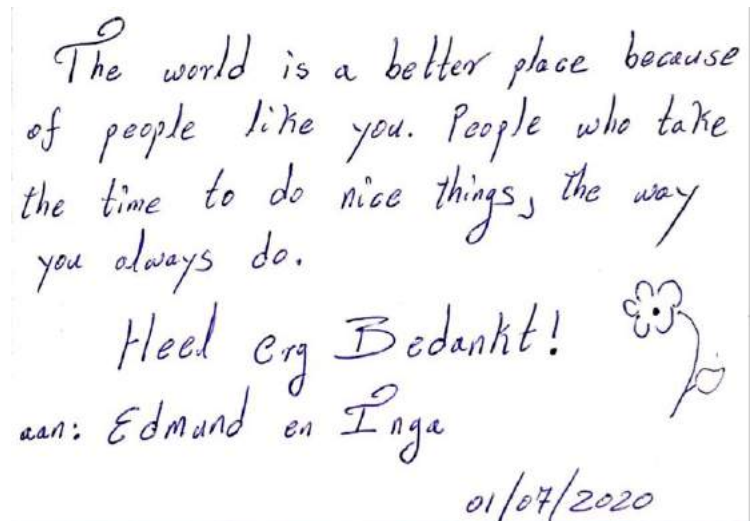 The world is a better place because
of people like you. People who take
the time to do nice things, the way
you always do.
Heel erg Bedankt!
aan: Edmund en Inga
01/07/2020